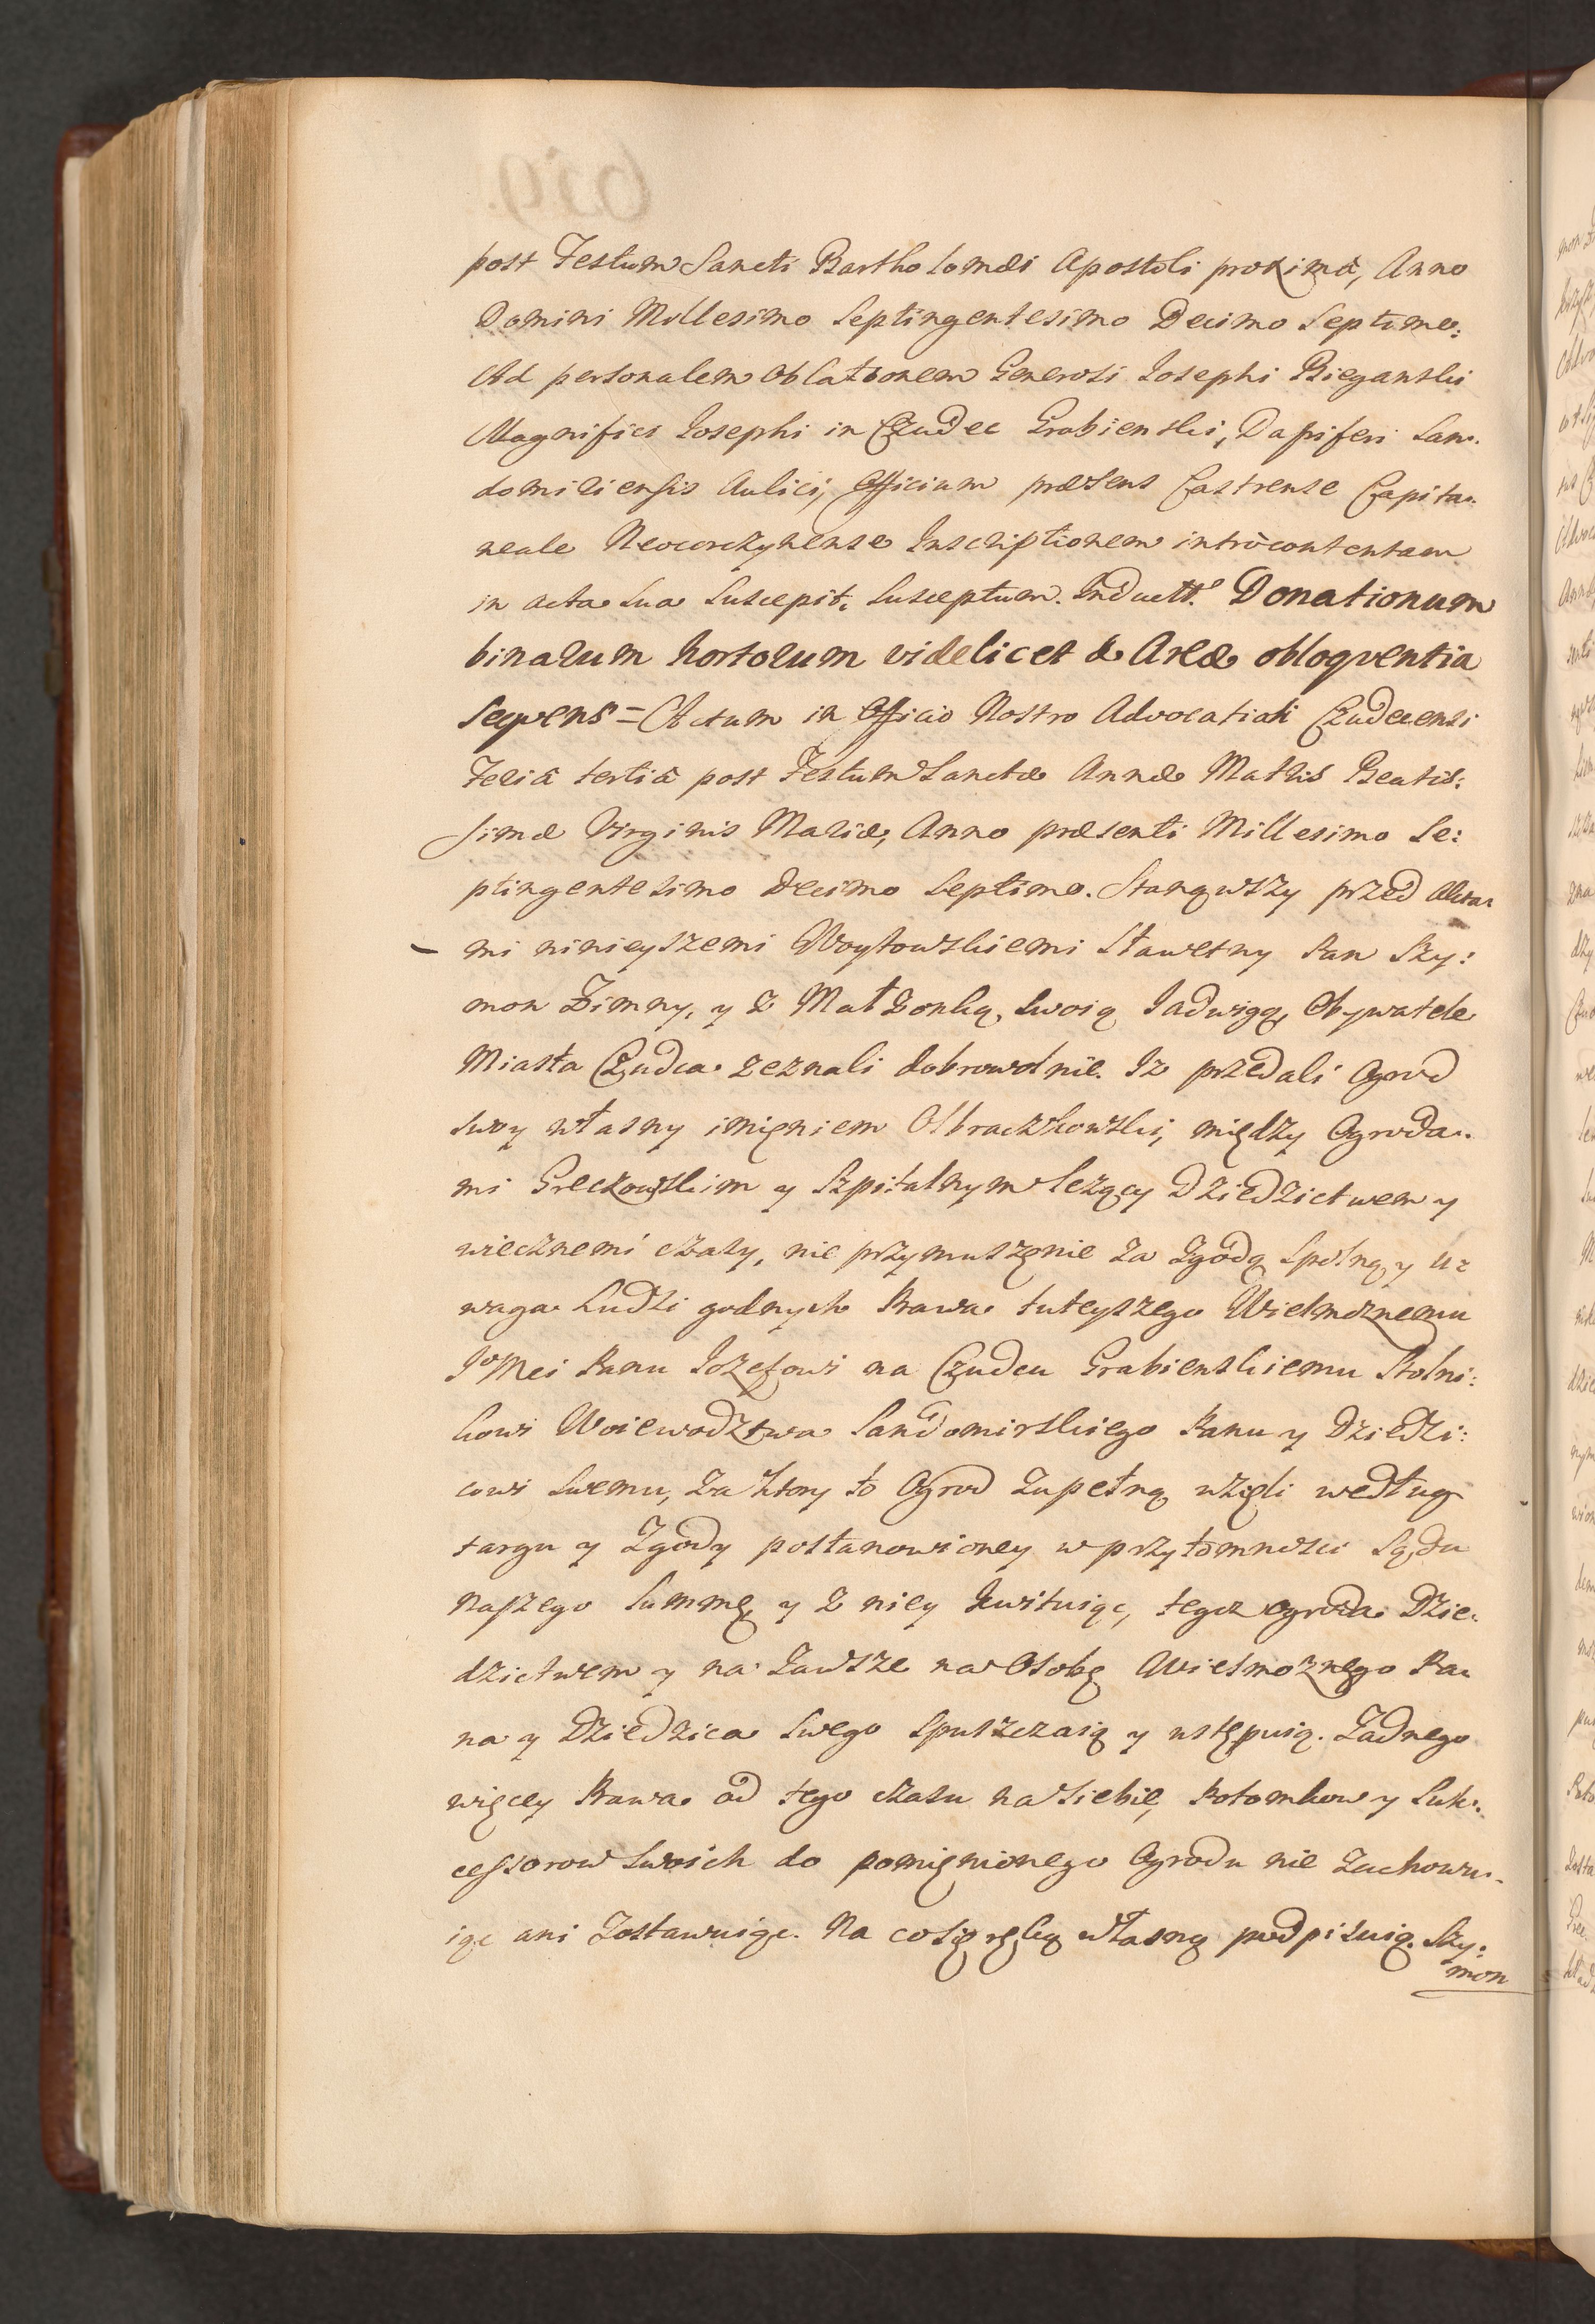 post Festum Sancti Bartholomæi Apostoli proximâ, Anno
Domini Millesimo Septingentesimo Decimo Septimo:
Ad personalem oblationem Generosi Josephi Bieganski
Magnifici Josephi in Czudec Grabienski, Dapiferi San:
domiriensis Aulici, Officium præsens Castrense Capita:
neale Neocorczynense Inscriptionem introcontentam
in acta sua suscepit. Susceptum. Induct. Donationum
binarum hortorum videlicet & Areæ obloquentia
sequens = Actum in Officio Nostro Advocatiali Czudecensi
Feria tertia post Festum Sanctæ Annæ Matris Beatis:
simæ Virginis Mariæ, Anno præsenti Millesimo Se:
ptingentesimo decimo septimo. Stanąwszy przed Akta:
mi ninieyszemi Woytowskiemi Sławetny Pan Szy:
mon Zimny, y z Małżonką swoią Jadwigą, Obywatele
Miasta Czudca zeznali dobrowolnie. Iż przedali Ogrod
swoy własny imięniem Olbraczkowski, między Ogroda:
mi Greczowskim y Szpitalnym leżący Dziedzictwem y
wiecznemi czasy, nie przymuszęnie za zgodą spolną y u:
waga Ludzi godnych Prawa tuteyszego Wielmożnemu
JoMci Panu Jozefowi na Czudcu Grabienskiemu Stolni:
kowi Woiewodztwa Sandomirskiego Panu y Dziedzi:
cowi swemu, za ktory to Ogrod zupełną wzięli według
targu y zgody postanowioney w przytomnosci Sądu
naszego summę, y z niey kwituiąc, tegoż ogroda Dzie:
dzictwem y na zawsze na Osobę Wielmożnego Pa:
na y Dziedzica swego spuszczaią y ustępuią. Zadnego
więcey Prawa od tego czasu na siebie, Potomkow y Suk:
cessorow swoich do pomięnionego Ogrodu nie zachowu:
iąc ani zostawuiąc. Na co się ręką własną podpisuią. Szy:
mon